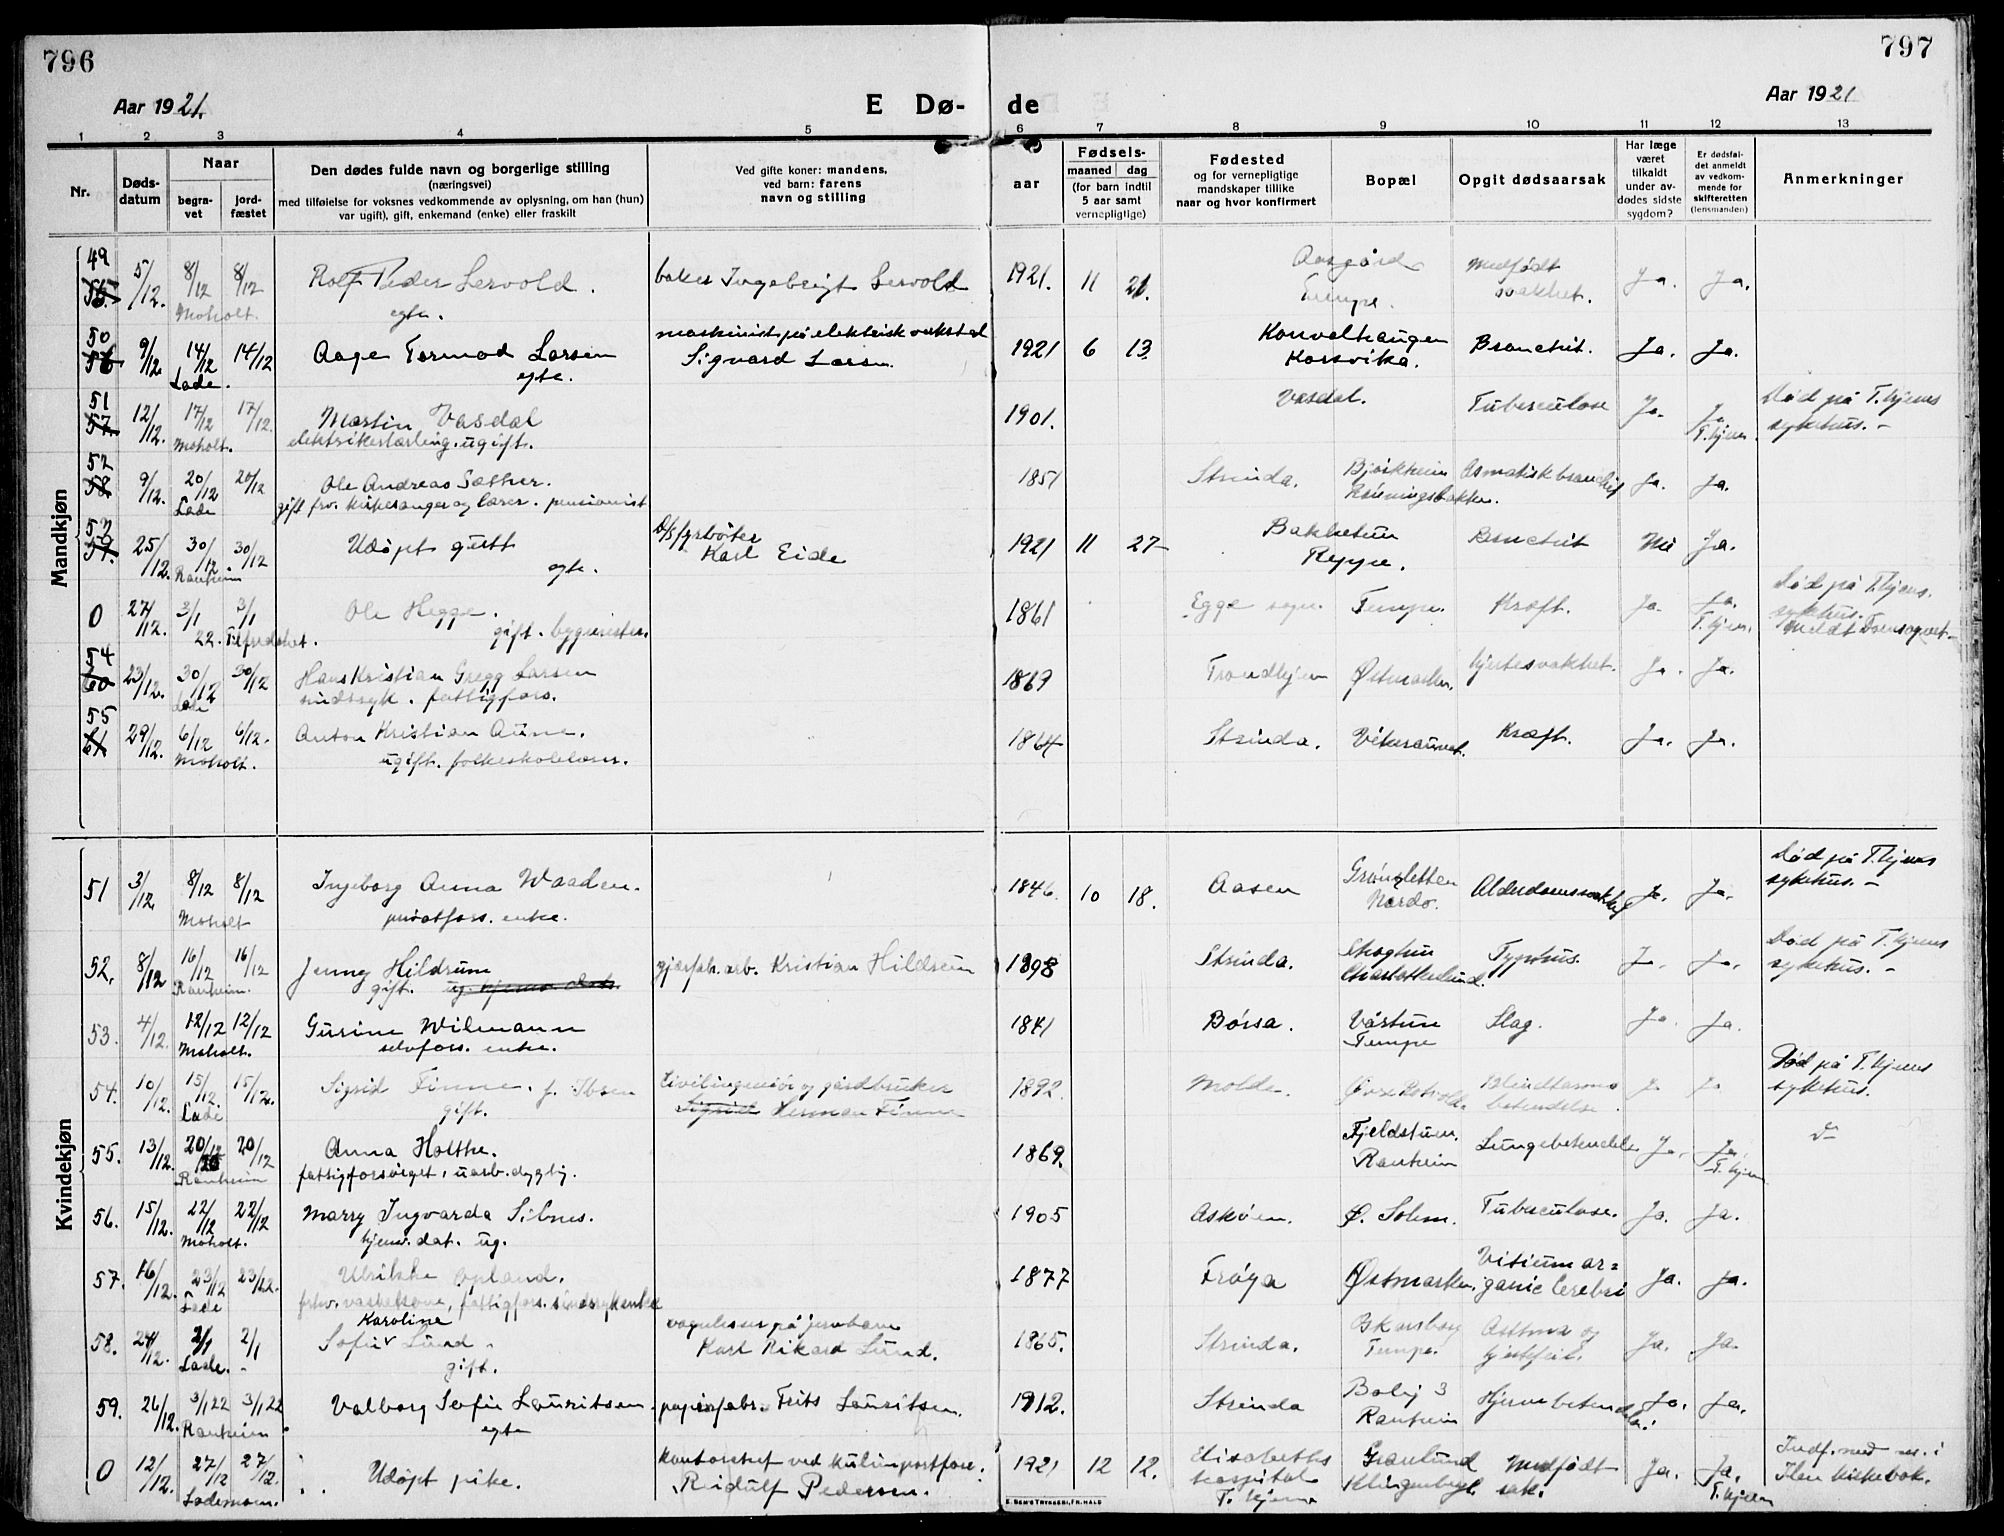 796
797
Aar 1921.
E Dø-
de
Aar 1921
1 2 3 4 5 6 7 8 9 10 11 12 13
Nr.
Døds-
datum
Naar
begra-
vet
jord-
fæstet
Den dødes fulde navn og borgerlige stilling
(næringsvei)
med tilføielse for voksnes vedkommende av oplysning, om han (hun)
var ugift), gift, enkemand (enke) eller fraskilt
Ved gifte koner: mandens,
ved barn: farens
navn og stilling
aar
Fødsels-
maaned dag
(for barn indtil
5 aar samt
vernepligtige)
Fødested
og for vernepligtige
mandskaper tillike
naar og hvor konfirmert
Bopæl
Opgit dødsaarsak
Har læge
været
tilkaldt
under av-
dødes sidste
sygdom?
Er dødsfal-
det anmeldt
av vedkom-
mende for
skifteretten
(lensmanden)
Anmerkninger
Mandkjøn
49 5/12. 8/12 8/12 Rolf Peder Lervold. baker Ingebrigt Lervold 1921. 11 21. Aasgård Medfødt Ja. Ja.
Moholt. egte. Tempe. svakhet.
50 9/12. 14/12 14/12 Aage Tormod Larsen maskinist på elektrisk verksted 1921 6 13. Bronchit. Ja. Ja.
Lade. egte. Sigvard Larsen Korsvika.
51 12/12. 17/12 17/12. Martin Vasdal 1901. Vasdal. Tuberculose Ja. Ja. Død på T.hjems
Moholt. elektrikerlærling. ugift. T.hjem. sykehus. -
52 9/12. 20/12 20/12 Ole Andreas Sæther. 1851 Strinda. Bjørkheim Asmatisk bronchit Ja. Ja.
Lade gift frv. kirkesanger og lærer. pensionist Rønningsbakken.
53 25/12. 30/12 30/12 Udøpt gutt D/S fyrbøter 1921 11 27 Bakketun Bronchit Nei Ja.
Ranheim egte. Karl Eide Reppe.
0 27/12. 3/1 3/1 Ole Hegge. 1861 Egge sogn. Tempe. Kræft. Ja. Ja. Død på T.hjems
22. gift. bygmester. T.hjem. sykehus.
54 23/12. 30/12 30/12 Hans Kristian Gregg Larsen 1869 Trondhjem Østmarken. hjertesvakhet. Ja. Ja.
Lade sindssyk. fattigfors.
55 29/12. 6/12 6/12. Anton Kristian Aune. 1864 Strinda. Kræft. Ja. Ja.
Moholt. ugift. folkeskolelærer.
Kvindekjøn
51 3/12. 8/12 8/12 Ingeborg Anna Waaden. 1846. 10 18. Aasen Grønsletten Alderdomssvakhet Ja. Ja. Død på T.hjems
Moholt privatfors. enke. Nardo. sykehus. -
52. 8/12 16/12 16/12 Jenny Hildrum gjærfab. arb. Kristian Hildrum 1898 Strinda. Skogtun Typhus. Ja. Ja. Død på T.hjems
Ranheim. gift. Charlottenlund. sykehus. -
53. 4/12. 12/12 12/12 Gurine Wilmann 1841 Børsa. Vårtun Slag. Ja. Ja.
Moholt. selvfors. enke. Tempe
54. 10/12. 15/12. 15/12. Sigrid Finne. f. Ibsen Civilingeniør og gårdbruker 1892. Molde. Blindtarms Ja Ja Død på T.hjems
Lade gift. Sigrid Herman Finne betendelse. sykehus.
55. 13/12. 20/12 20/12 Anna Holthe. 1869. Fjeldstuen. Lungebetendelse Ja. Ja.
Ranheim fattigforsørget, uarb.dygtig. Ranheim T.hjem
56. 15/12. 22/12 22/12 Marry Ingvarda Sibnes. 1905 Askøen. Ø. Solem. Tuberculose. Ja. Ja.
Moholt. hjemv. dat. ug.
57. 16/12. 23/12 23/12. Ulrikke Opland. 1877 Frøya Østmarken. Vitium or=
Lade frhv. vaskekone, fattigfors. sindssyk enke ganic Cerebri Ja. Ja.
58. 24/12. 2/1 2/1 Sofie Karoline Lund. vognlesser på jernbanen 1865. Strinda. Skarsborg Asthma og Ja. Ja.
Lade. - gift. Karl Rikard Lund. Tempe. hjertefeil.
59. 26/12. 3/1 22 3/1 22 Valborg Sofie Lauritsen. papirfabr. Frits Lauritsen. 1912. Strinda Bolig 3 Hjernebetendelse. Ja. Ja.
Ranheim egte Ranheim
0 12/12. 27/12 27/12. Udøpt pike. kontorchef ved kulimportfore. 1921 12 12. Elisabeths Granlund Medfødt Ja. Ja. Indf. med nr. i
Lademoen. Ridulf Pedersen. hospital Klingenberg. svak. T.hjem Ilen kirkebok.
T.hjem
E. SEM'S TRYKKERI, FR.HALD